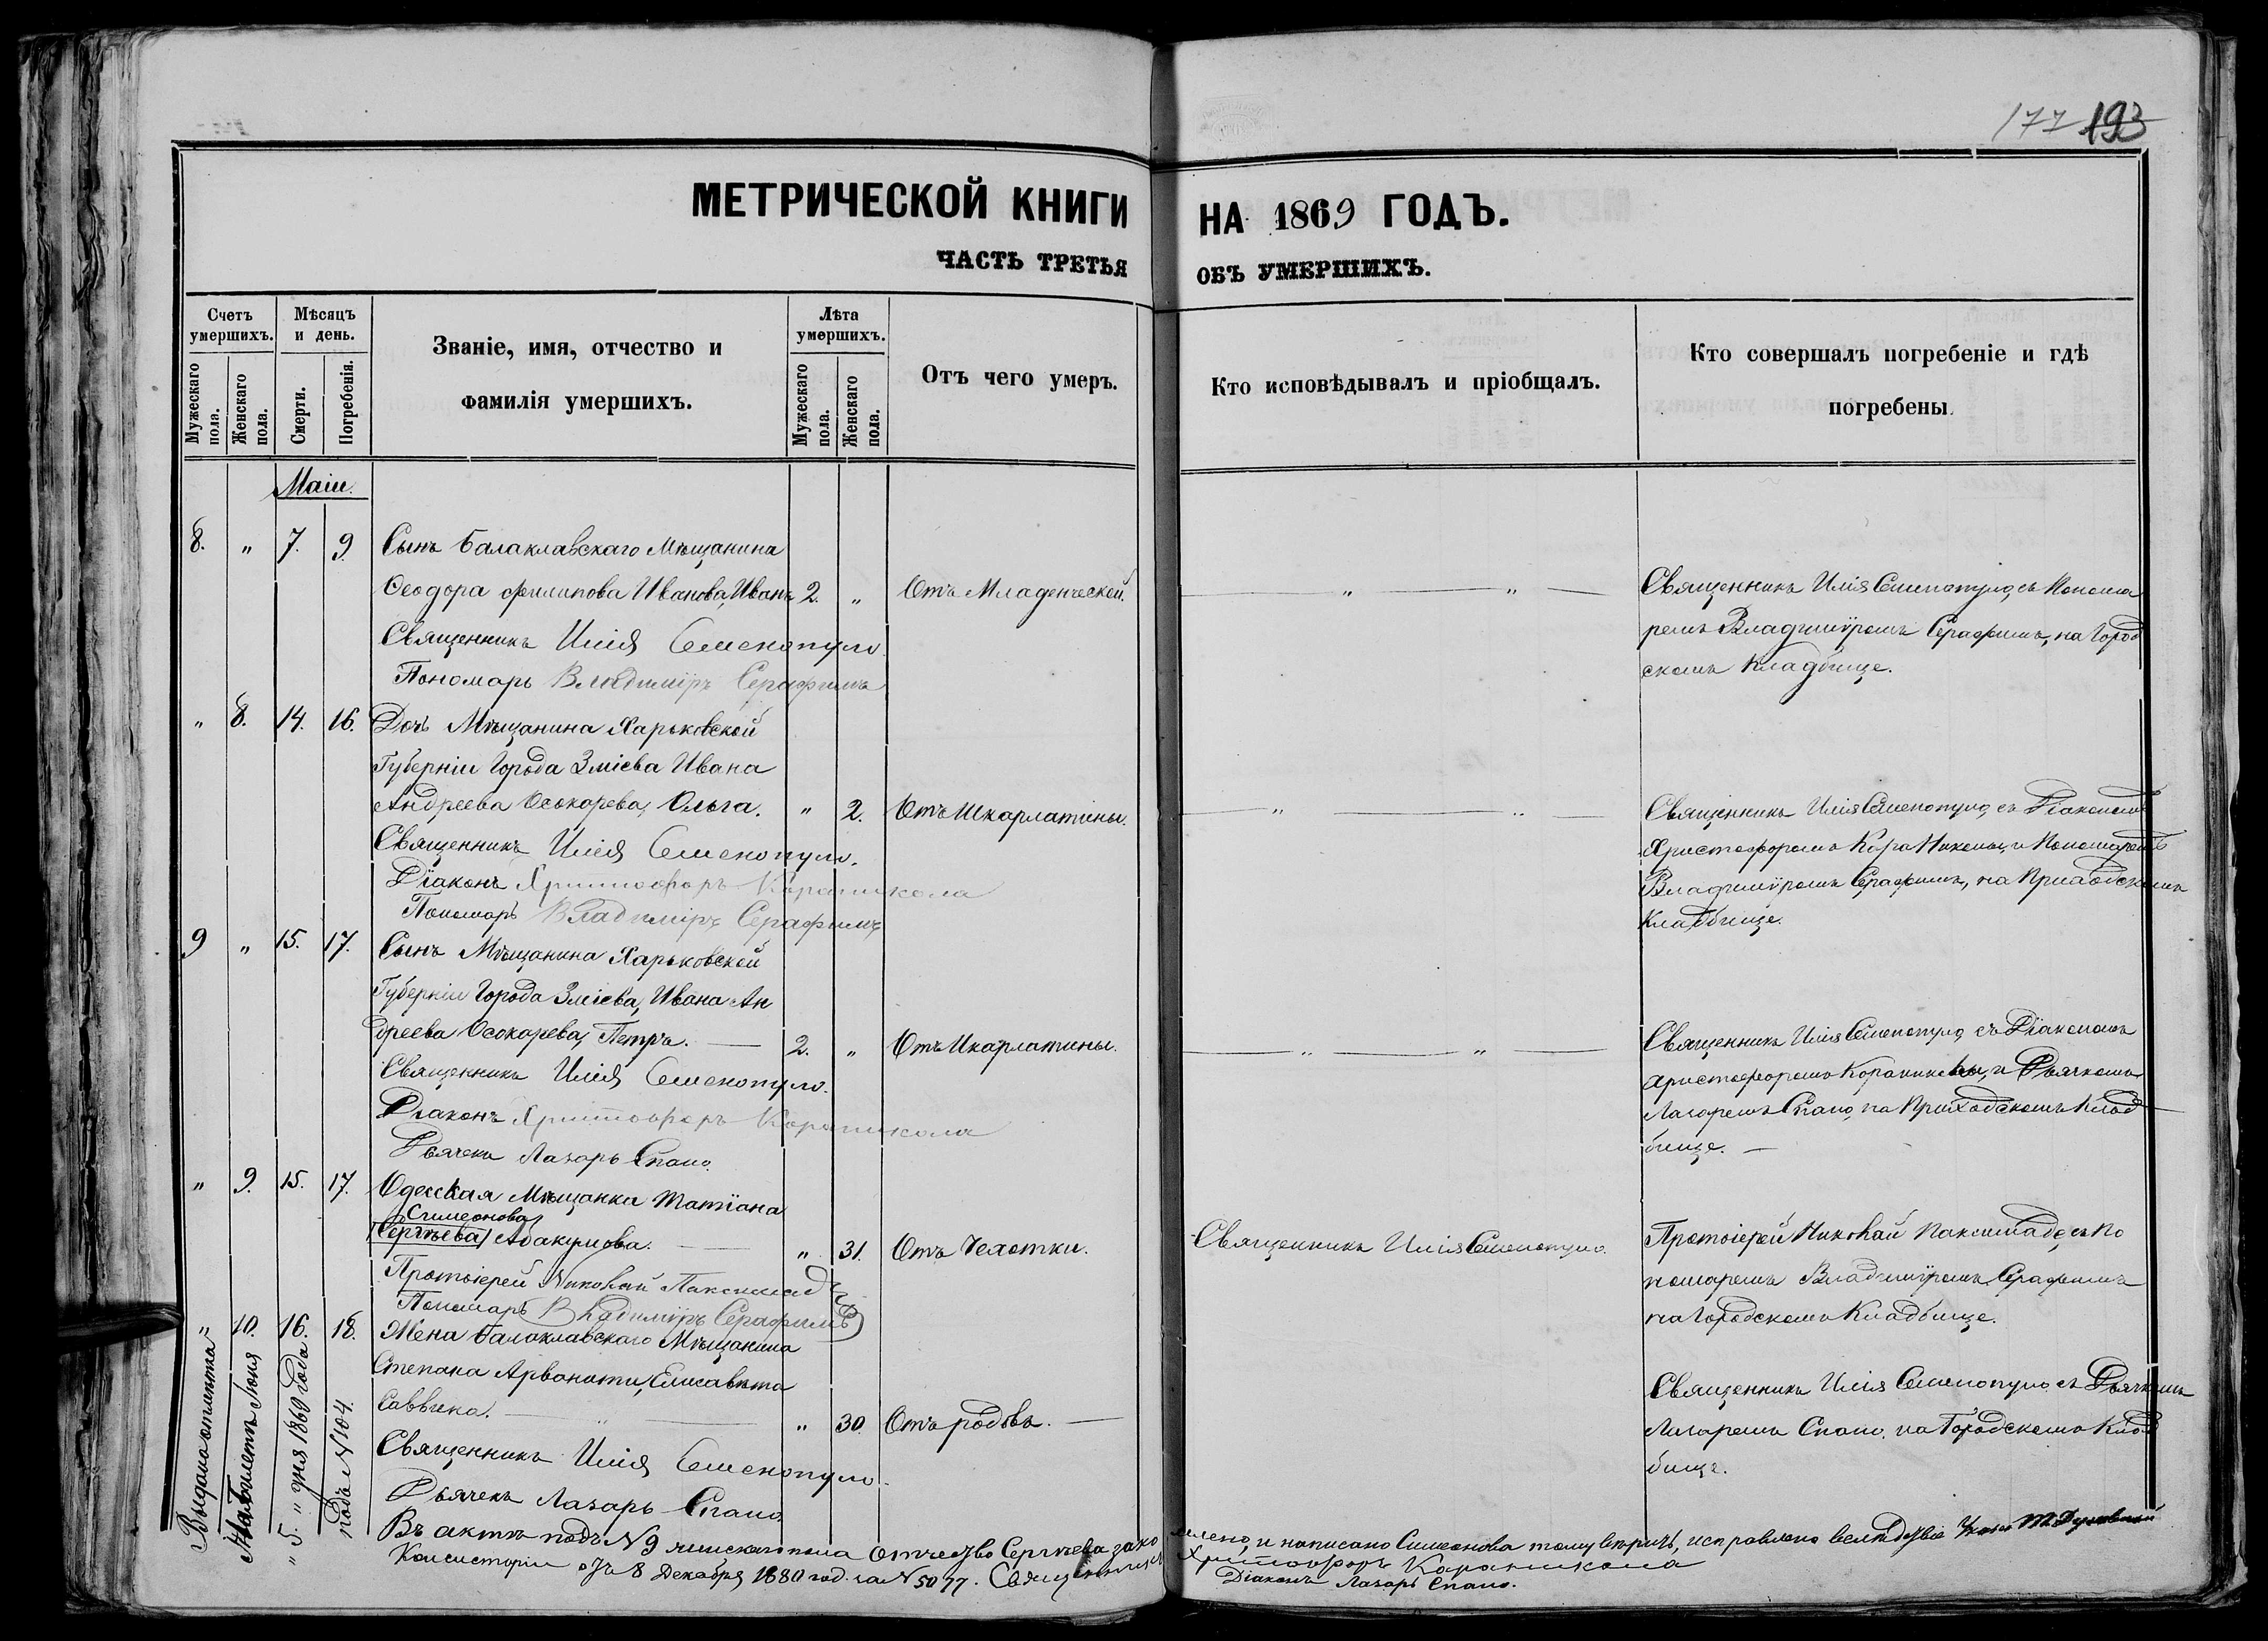 177 193
МЕТРИЧЕСКОЙ КНИГИ НА 1869 ГОДЪ.
ЧАСТЬ ТРЕТЬЯ ОБЪ УМЕРШИХЪ.
Счетъ умершихъ.
Мужескаго пола.
Женскаго пола.
Мѣсяцъ и день.
Смерти.
Погребенія.
Званіе, имя, отчество и
фамилія умершихъ.
Лѣта умершихъ.
Мужескаго пола.
Женскаго пола.
Отъ чего умеръ.
Кто исповѣдывалъ и пріобщалъ.
Кто совершалъ погребеніе и гдѣ
погребены
Маіи.
8. " 7. 9. Сынъ Балаклавскаго Мѣщанина
Ѳеодора Филипова Иванова, Иванъ 2. " Отъ Младенческой. " "
Священникъ Илія Семенопуло
Пономарь Владиміръ Серафимъ
Священникъ Илія Семенопуло, съ Понома
ремъ Владиміромъ Серафимъ, на Город
скомъ Кладбище.
" 8. 14. 16. Дочь Мѣщанина Харьковской
Губерніи Города Зміева Ивана
Андреева Осокорева, Ольга. " 2. Отъ Шкарлатины. " "
Священникъ Илія Семенопуло.
Діаконъ Христофоръ Караникола
Пономарь Владиміръ Серафимъ
Священникъ Илія Семенопуло, съ Діакономъ
Христофоромъ Кара Николы, и Пономаремъ
Владиміромъ Серафимъ, на Приходскомъ
Кладбище.
9 " 15. 17. Сынъ Мѣщанина Харьковской
Губерніи Города Зміева, Ивана Ан
дреева Осокарева, Петръ. 2. " Отъ Шкарлатины. " "
Священникъ Илія Семенопуло.
Діаконъ Христофоръ Караникола
Дьячекъ Лазарь Спано.
Священникъ Илія Семенопуло, съ Діакономъ
Христофоромъ Караниколы, и Дьячкомъ
Лазаремъ Спано, на Приходскомъ Клад
бище.
" 9. 15. 17. Одесская Мѣщанка Татіана
Симеонова
(Сергѣева) Абакумова. " 31. Отъ Чехотки. Священникъ Илія Семенопуло.
Протоіерей Николай Паксимадъ
Пономарь Владиміръ Серафимъ
Протоіерей Николай Паксимадъ, съ По
номаремъ Владиміромъ Серафимъ
на Городскомъ Кладбище.
" 10. 16. 18. Жена Балаклавскаго Мѣщанина
Степана Арванити, Елисавета
Саввина. " " 30. Отъ родовъ.
Священникъ Илія Семенопуло.
Дьячекъ Лазарь Спано
Священникъ Илія Семенопуло съ Дьячкомъ
Лазаремъ Спано. на Городскомъ Клад
бище.
Выдана отмѣтка
На Билетъ Іюня
" 5. " дня 1869 года
подъ N 104.
Въ актѣ подъ N 9 женскаго пола отчество Сергѣева зако и написано Симеонова исправлено вслѣдствіе
Консисторіи отъ 8 Декабря 1880 год. за N 5077. Священникъ Христофоръ Караникола
Діаконъ Лазарь Спано.